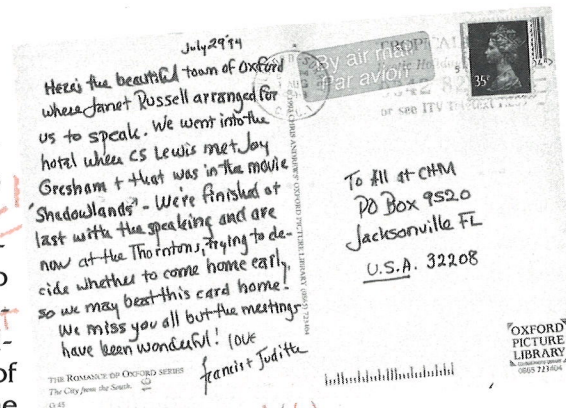 July 29 '94
Here's the beautiful town of Oxford
where Janet Russell arranged for
us to speak. We went into the
hotel where CS Lewis met Joy
Gresham + that was in the movie
"Shadowlands" - We're finished at
last with the speaking and are
now at the Thorntons, trying to de-
cide whether to come home early,
so we may beat this card home!
We miss you all but the meetings
have been wonderful! Love
Francis + Judith
THE ROMANCE OF OXFORD SERIES
The City from the South.
O.45
CHRIS ANDREWS' OXFORD PICTURE LIBRARY (0865) 723404
By air mail
Par avion
TROPICAL
or see ITV
35
To All at CHM
PO Box 9520
Jacksonville FL
U.S.A. 32208
OXFORD
PICTURE
LIBRARY
0865 723404
of